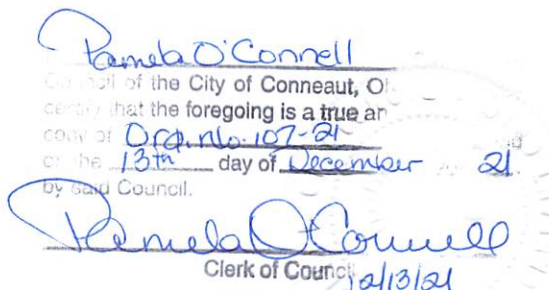 Pamela O'Connell
Council of the City of Conneaut, O
certify that the foregoing is a true an
copy of Ord. No. 107-21
on the 13th day of December 21
by said Council.
Pamela O'Connell
Clerk of Council 12/13/21